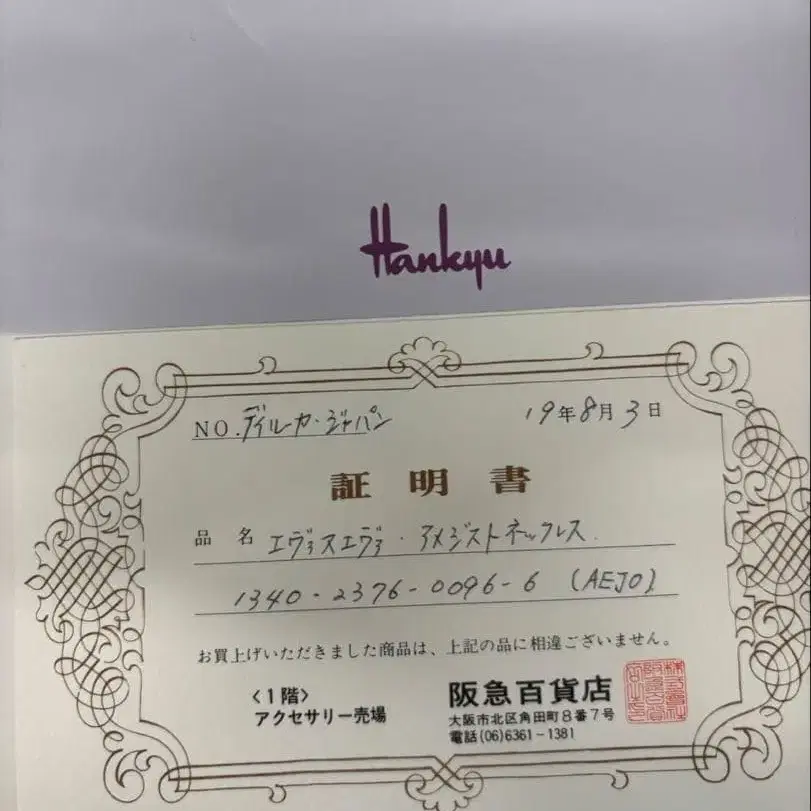 Hankyu
NO. ディルカ・ジャパン
19年8月3日
証明書
品名 エヴァスエヴァ・アメジストネックレス.
1340-2376-0096-6 (AEJO)
お買上げいただきました商品は、上記の品に相違ございません。
〈1階〉
アクセサリー売場
阪急百貨店
大阪市北区角田町8番7号
電話(06)6361-1381